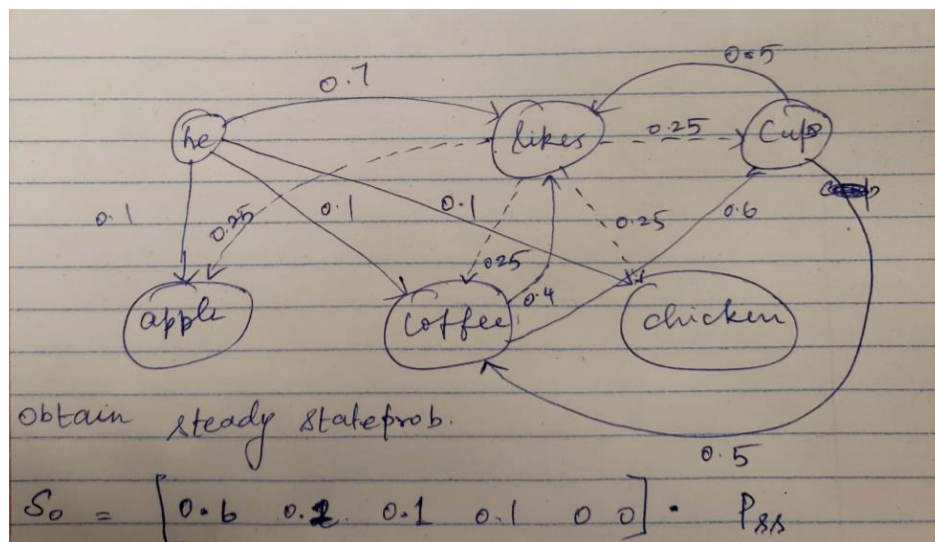 0.7
0.5
he
likes
0.25
Cups
0.1
0.25
0.1
0.1
0.25
0.6
0.25
0.4
apple
Coffee
chicken
Obtain steady state prob.
0.5
S₀ = [0.6 0.2 0.1 0.1 0 0] · Pss